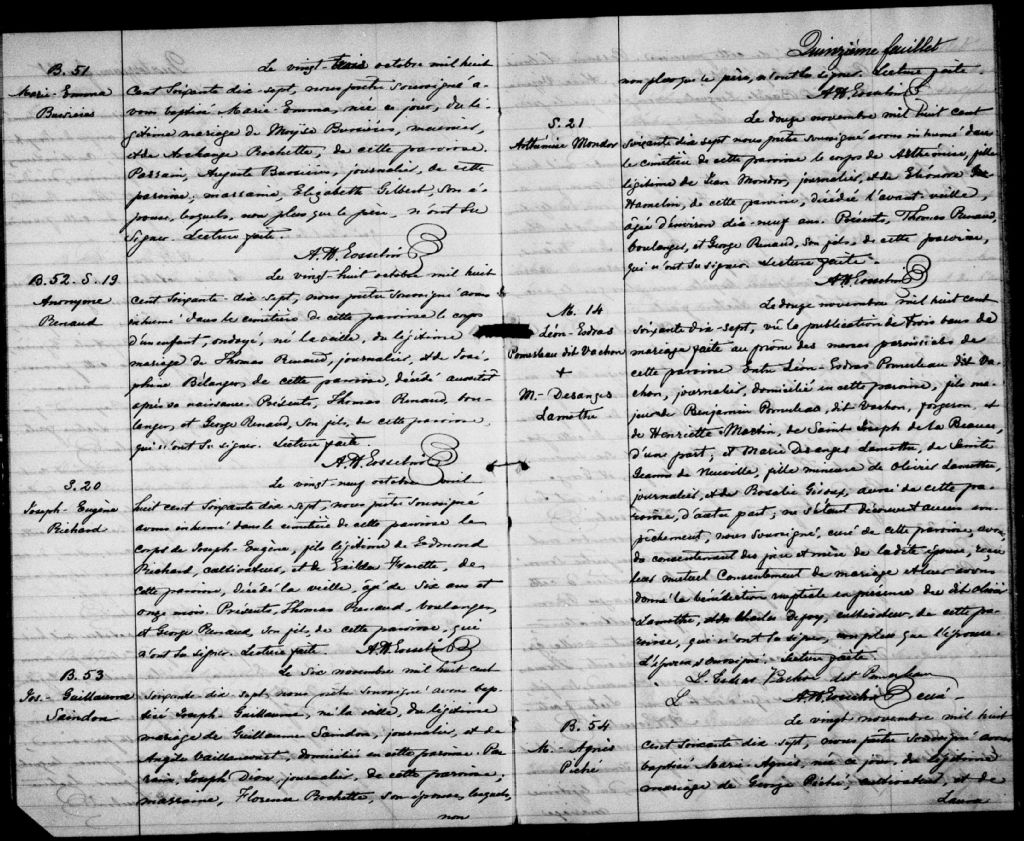 B. 51
Marie-Emma
Bussières
Le vingt-trois octobre mil huit
Cent Soixante dix-sept, nous prêtre Soussigné a-
vons baptisé Marie-Emma, née ce jour, du lé-
gitime mariage de Moyïse Bussières, meunier,
et de Archange Rochette, de cette paroisse.
Parrain, Auguste Bussières, journalier, de cette
paroisse; marraine, Elizabeth Gilbert, Son é-
pouse, lesquels, non plus que le père, n'ont su
Signer. Lecture faite.
B. 52. S. 19
Anonyme
Renaud
Le vingt-huit octobre mil huit
Cent Soixante-dix-sept, nous prêtre Soussigné avons
inhumé dans le cimetière de cette paroisse le corps
d'un enfant, ondoyé, né la veille, du légitime
mariage de Thomas Renaud, journalier, et de José-
phine Bélanger, de cette paroisse, décédé aussitôt
après sa naissance. Présents, Thomas Renaud, bou-
langer, et George Renaud, Son fils, de cette paroisse,
qui n'ont Su signer. Lecture faite.
S. 20
Joseph-Eugène
Richard
Le vingt-neuf octobre mil
huit cent Soixante dix Sept, nous prêtre Soussigné
avons inhumé dans le cimetière de cette paroisse le
corps de Joseph-Eugène, fils légitime de Edmond
Richard, cultivateur, et de Frenette, de
cette paroisse, décédé la veille, âgé de Six ans et
onze mois. Présents, Thomas Renaud, boulanger,
et George Renaud, Son fils, de cette paroisse, qui
n'ont Su signer. Lecture faite
B. 53
Jos-Guillaume
Saindon
Le Six novembre mil huit cent
Soixante dix sept, nous prêtre Soussigné avons bap-
tisé Joseph-Guillaume, né la veille, du légitime
mariage de Guillaume Saindon, journalier, et de
Angèle Vaillancourt, domiciliés en cette paroisse. Par-
rain, Joseph Dion, journalier, de cette paroisse;
marraine, Florence Rochette, Son épouse, lesquels,
non
Quinzième feuillet
non plus que le père, n'ont su signer. Lecture faite.
S. 21
Arthémise Mondor
Le douze novembre mil huit cent
Soixante dix sept nous prêtre Soussigné avons inhumé dans
le cimetière de cette paroisse le corps de Arthémise, fille
légitime de Jean Mondor, journalier, et de Eléonore
Hamelin, de cette paroisse, décédée l'avant-veille,
âgée d'environ dix-neuf ans. Présents, Thomas Renaud,
boulanger, et George Renaud, Son fils, de cette paroisse,
qui n'ont Su signer. Lecture faite.
M. 14
Léon-Esdras
Pomerleau dit Vachon
+
M-Desanges
Lamothe
Le douze novembre mil huit cent
Soixante dix-sept, vu la publication de trois bans de
mariage faite au prône des messes paroissiales de
cette paroisse Entre Léon-Esdras Pomerleau dit Va-
chon, journalier, domicilié en cette paroisse, fils ma-
jeur de Benjamin Pomerleau dit Vachon, forgeron, et
de Henriette Machin, de Saint Joseph de la Beauce,
d'un part; et Marie Desanges Lamothe, de Sainte
Jeanne de Neuville, fille mineure de Olivier Lamothe,
journalier, et de Rosalie Giroux, aussi de cette pa-
roisse, d'autre part; ne s'étant découvert aucun em-
pêchement, nous Soussigné, curé de cette paroisse, avons
du consentement des père et mère de la dite épouse, reçu
leur mutuel Consentement de mariage et leur avons
donné la bénédiction nuptiale en présence du dit Olivier
Lamothe, et de Charles Dejoy, cultivateur, de cette pa-
roisse, qui n'ont Su signer, non plus que l'épouse.
L'époux a Soussigné. Lecture faite
L. Esdras Vachon dit Pomerleau
curé
B. 54
M-Agnès
Piché
Le vingt novembre mil huit
Cent Soixante dix sept, nous prêtre Soussigné avons
baptisé Marie-Agnès, née ce jour, du légitime
mariage de George Piché, cultivateur, et de
Laura